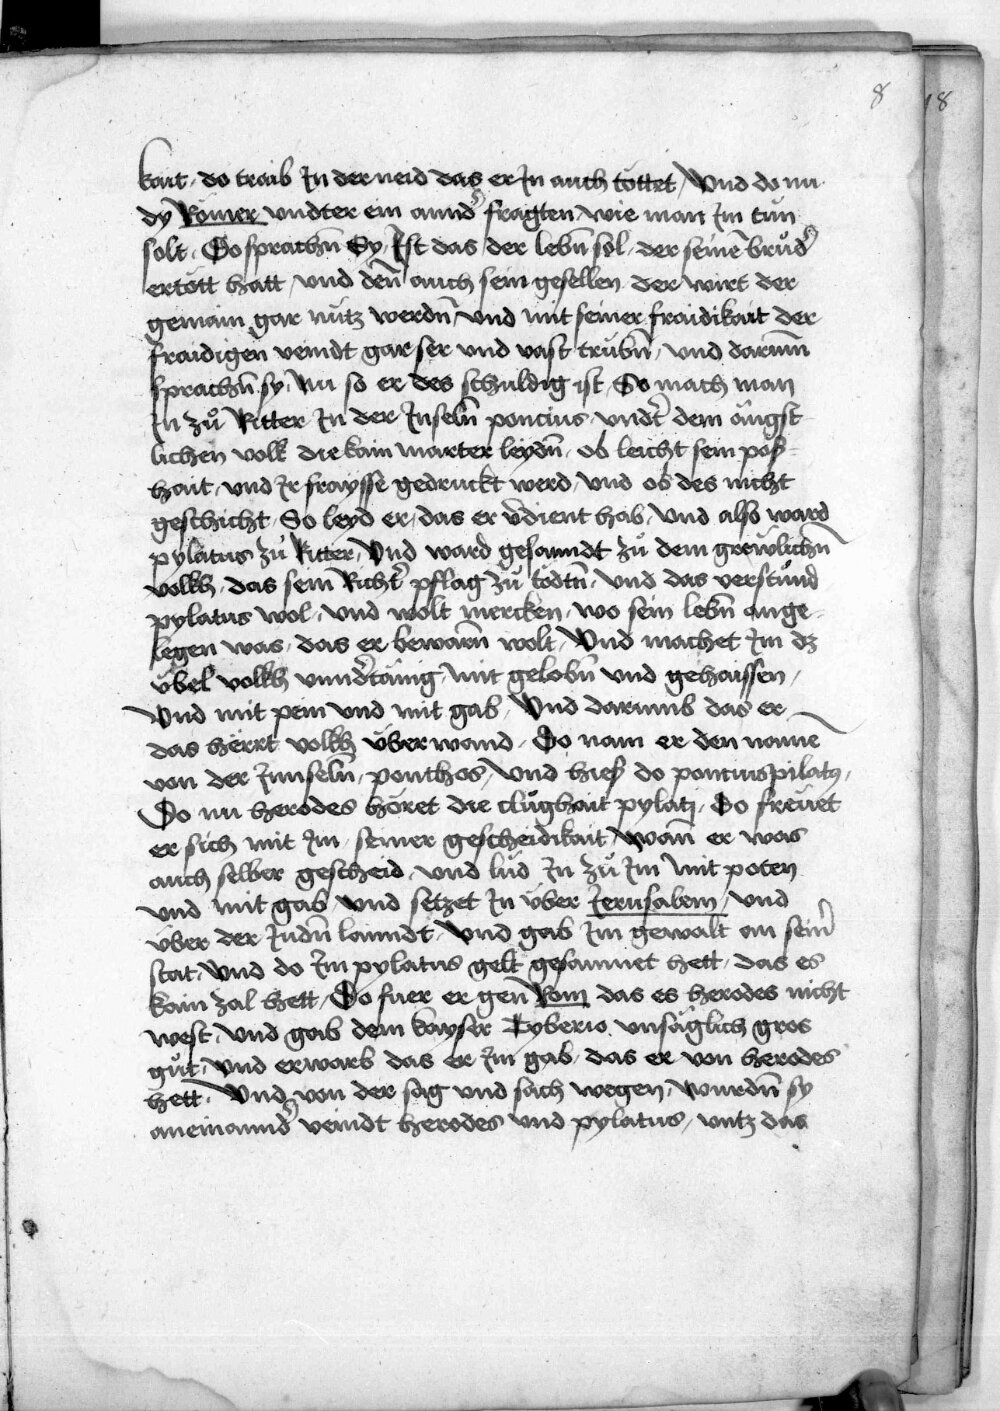 8
18
kait, do traib Jn der neid das er Jn auch töttet, Und do nu
dy Römer undter ein annd̄ fragten, wie man Jm tün
solt, Do sprachn̄ Sy, Jst das der lebn̄ sol, der seinē brůd̄
ertött hatt, und den̄ auch sein gesellen der wirt der
gemain gar nütz werdn̄, und mit seiner fraidikait der
fraidigen veindt gar ser und vast trübn̄, und darumm
sprachn̄ sy, Nu so er des schuldig ist, So mach man
Jn zů Ritter Jn der Jnseln̄ poncius, undt̄ dem ängst-
lichen volk die kain marter leydn̄, ob leicht sein pos-
hait, und Jr fraysse gedruckt werd, und ob des nicht
geschicht, So leyd er, das er v̄dient hab, und also ward
pylatus zů Ritter, Und ward gesanndt zů dem grewlichn̄
volkh, das sein Richt̄ pflag zů tödtn̄, und das verstůnd
pylatus wol, und wolt mercken, wo sein lebn̄ ange-
legen was, das er bewarn̄ wolt, Und machet Jm dz
übel volkh unnd̄täinig, mit gelobn̄ und gehaissen,
Und mit pein und mit gab, Und darumb das er
das herrt volkh überwand, Do nam er den namē
von der Jnnseln̄, ponthos, Und hies do poncius pilatꝰ,
Do nu herodes höret die clůghait pylatj, Do freüet
er sich mit Jm, seiner gescheidikait, wan̄ er was
auch selber gescheid, und lůd Jn zů Jm mit poten
und mit gab, und setzet Jn über Jerusalem, und
über der Judn̄ lanndt, Und gab Jm gewalt an sein̄
stat, Und do Jm pylatus gelt gesammet hett, das es
kain zal hett, Do fuer er gen Rom das es herodes nicht
west, und gab dem kayser Tyberio unsäglich gros
gůt, und erwarb das er Jm gab, das er von herodes
hett, Und von der sag und sach wegen, wurdn̄ sy
aneinannd̄ veindt herodes und pylatus, untz das